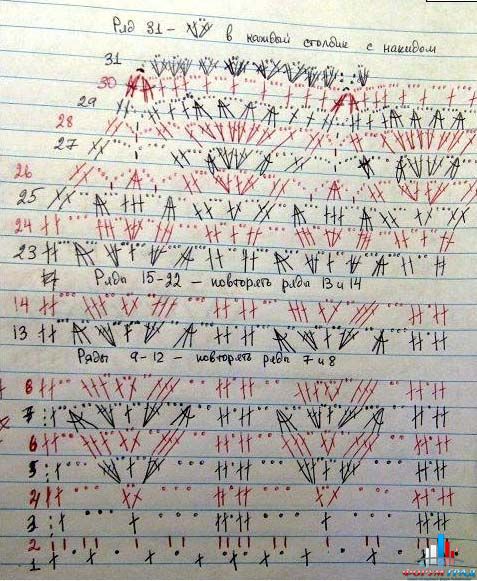 Ряд 31 - в каждый столбик с накидом
31
30
29
28
27
26
25
24
23
Ряды 15-22 — повторять ряды 13 и 14
14
13
Ряды 9-12 — повторять ряды 7 и 8
8
7
6
5
4
3
2
1
ФОРУМ ГРАД